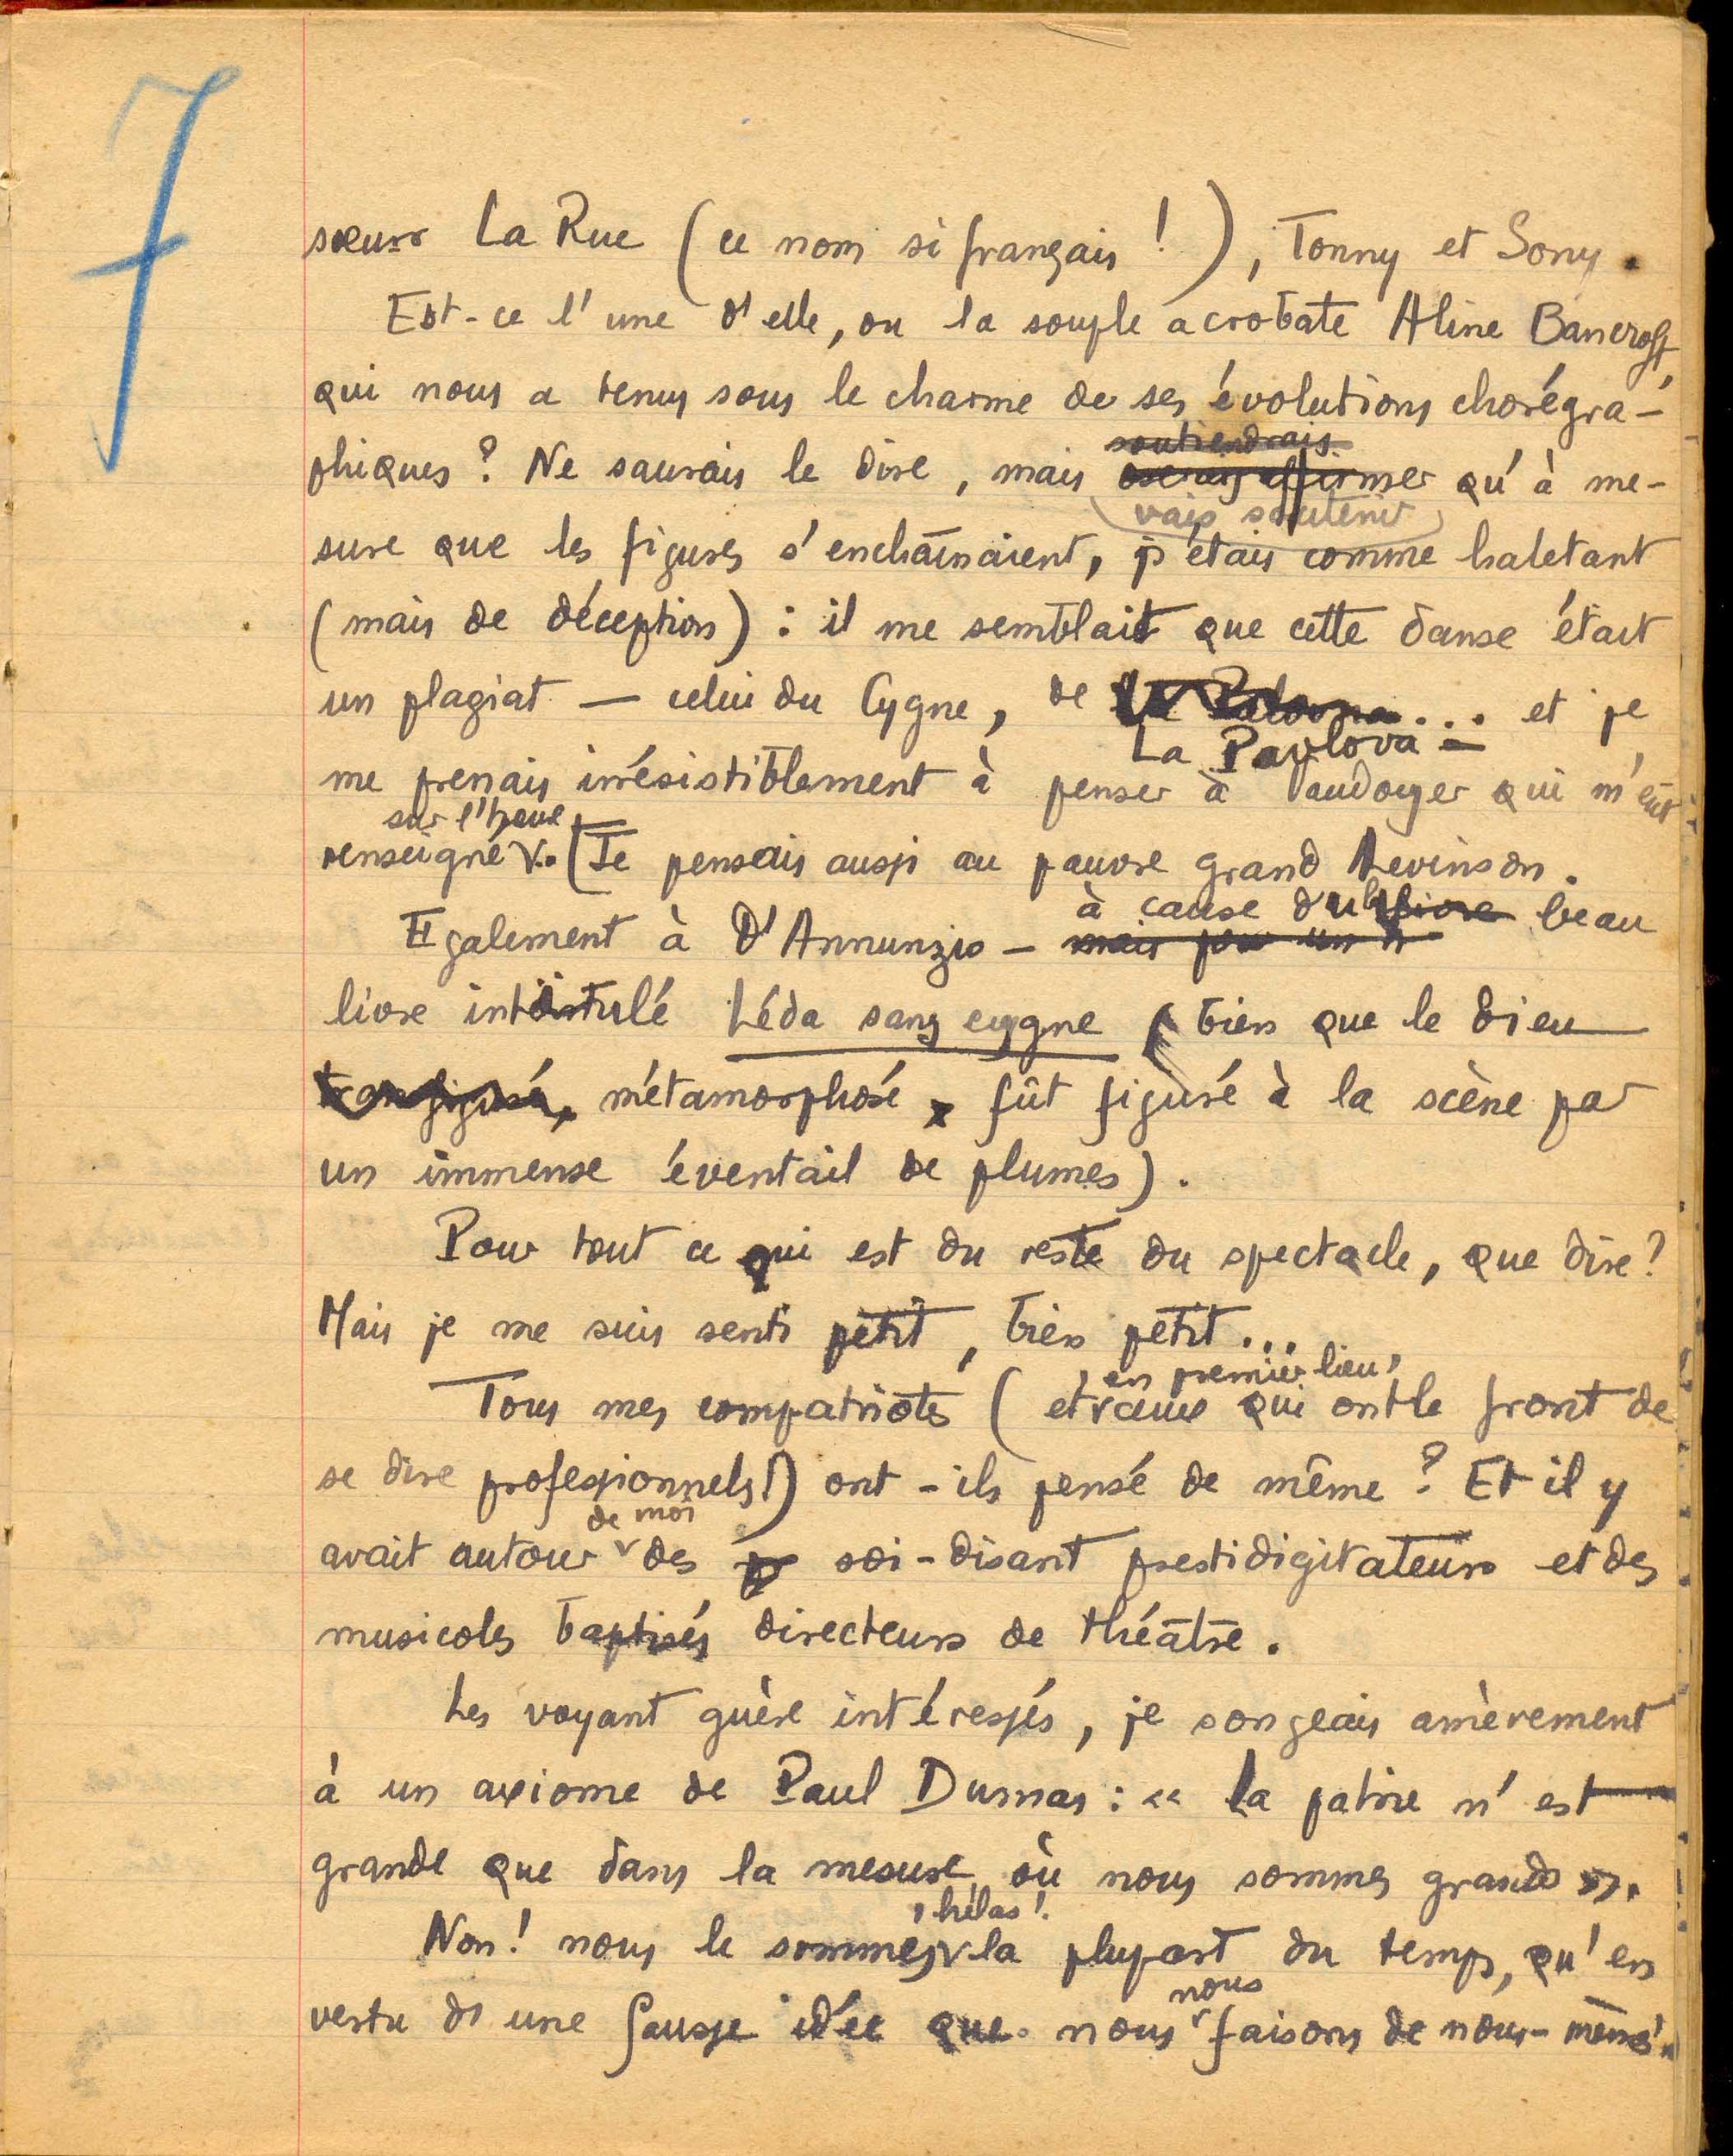 7
sœurs La Rue (ce nom si français !), Tonny et Sony.
Est-ce l'une d'elle, ou la souple acrobate Aline Bancroft,
qui nous a tenus sous le charme de ses évolutions chorégra-
soutiendrais
phiques ? Ne saurais le dire, mais oserais affirmer qu'à me-
vais soutenir
sure que les figures s'enchaînaient, j'étais comme haletant
(mais de déception) : il me semblait que cette danse était
un plagiat — celui du Cygne, de La Pavlova... et je
La Pavlova —
me prenais irrésistiblement à penser à Vaudoyer qui m'eût
sur l'heure
renseigné. (Je pensais aussi au pauvre grand Levinson.
à cause du livre beau
Egalement à D'Annunzio — mais pour un
livre intitulé Léda sans cygne (bien que le dieu
transfiguré, métamorphosé, fût figuré à la scène par
un immense éventail de plumes).
Pour tout ce qui est du reste du spectacle, que dire ?
Mais je me suis senti petit, bien petit...
en premier lieu,
Tous mes compatriotes (et ceux qui ont le front de
se dire professionnels !) ont-ils pensé de même ? Et il y
de moi
avait autour des soi-disant prestidigitateurs et des
musicoles baptisés directeurs de théâtre.
Les voyant guère intéressés, je songeais amèrement
à un axiome de Paul Dumas : « La patrie n'est
grande que dans la mesure où nous sommes grands ».
, hélas !
Non ! nous le sommes, la plupart du temps, qu'en
nous
vertu d'une fausse idée que nous faisons de nous-même.